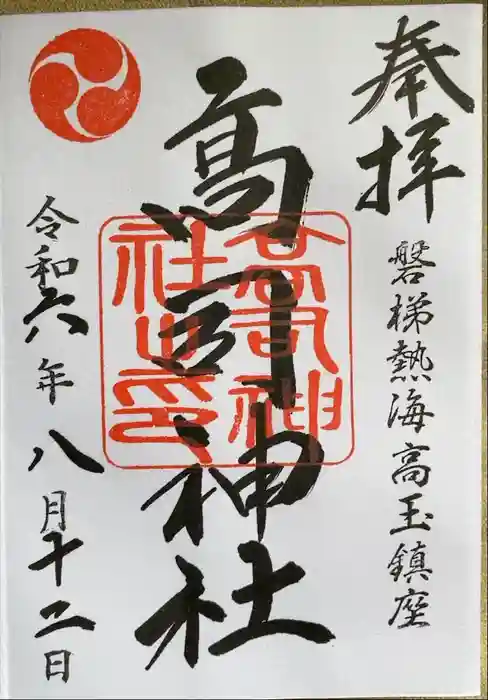 奉拝
磐梯熱海高玉鎮座
高司神社
高司神社之印
令和六年八月十二日